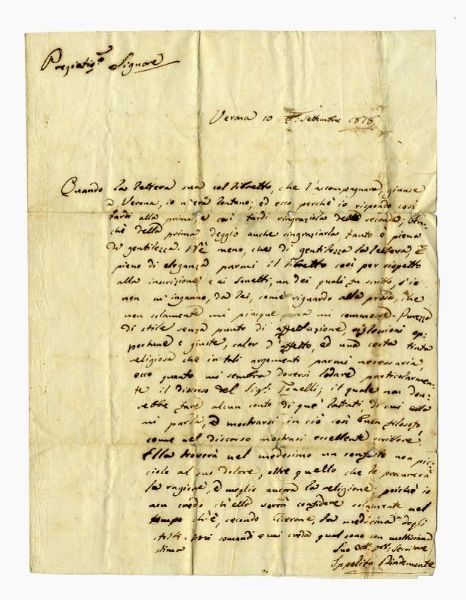 Pregiatig.º Signore
Verona 10 Settembre 1818
Quando la lettera sua col libretto, che l'accompagnava, giunse
a Verona, io n'era lontano: ed ecco perchè io rispondo così
tardi alla prima, e così tardi ringraziola della seconda,
chè della prima deggio anche ringraziarla, tanto è piena
di gentilezza. Nè meno, che di gentilezza la lettera, è
pieno di eleganza parmi il libretto così per rispetto
alla inscrizione e ai Sonetti, un dei quali fu scritto, s'io
non m'inganno, da Lei, come riguardo alla prosa, che
non solamente mi piacque, ma mi commosse. Purezza
di stile senza punto di affettazione, riflessioni op-
portune e giuste, calor d'affetto, ed una certa tinta
religiosa che in tali argomenti parmi necessaria,
ecco quanto mi sembra doversi lodare particolarmen-
te il discorso del Sig.r Tonelli; il quale non dov-
rebbe fare alcun conto di que' di cui ella
mi parla, e mostrarsi in ciò così buon filosofo
come nel discorso mostrasi eccellente scrittore.
Ella troverà nel medesimo un conforto non pic-
ciolo al suo dolore, oltre quello che le procurerà
la ragione, e meglio ancora la religione: poichè io
non credo ch'ella vorrà confidare solamente nel
tempo ch'è, secondo Cicerone, la medicina degli
stolti. Mi comandi e mi creda qual sono con moltissima
stima
Suo Servitore
Ippolito Pindemonte